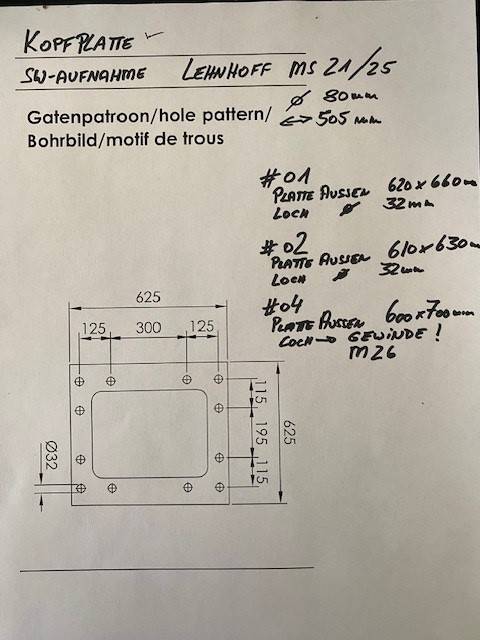 KOPFPLATTE
SW-AUFNAHME LEHNHOFF MS 21/25
Gatenpatroon/hole pattern/
Bohrbild/motif de trous
Ø 80mm
<-> 505 mm
#01
PLATTE AUSSEN 620 x 660mm
LOCH Ø 32mm
#02
PLATTE AUSSEN 610 x 630mm
LOCH Ø 32mm
#04
PLATTE AUSSEN 600 x 700mm
LOCH -> GEWINDE!
M26
625
125 300 125
115
195
115
625
Ø32